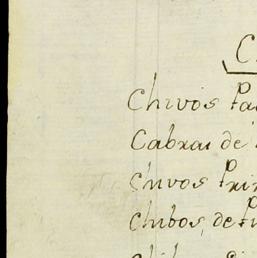 C
Chivos Pa
Cabras de
Chivos Pri
Chibos, de